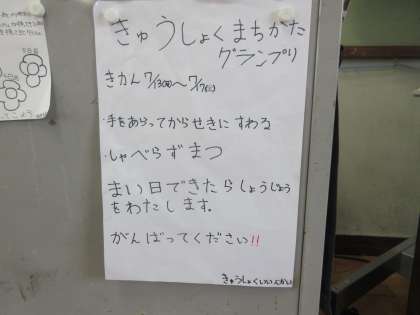 きゅうしょくまちがた
グランプリ
きかん 7/13(月)~7/17(金)
・手をあらってからせきにすわる
・しゃべらずまつ
まい日できたらしょうじょう
をわたします。
がんばってください!!
きゅうしょくいいんかい